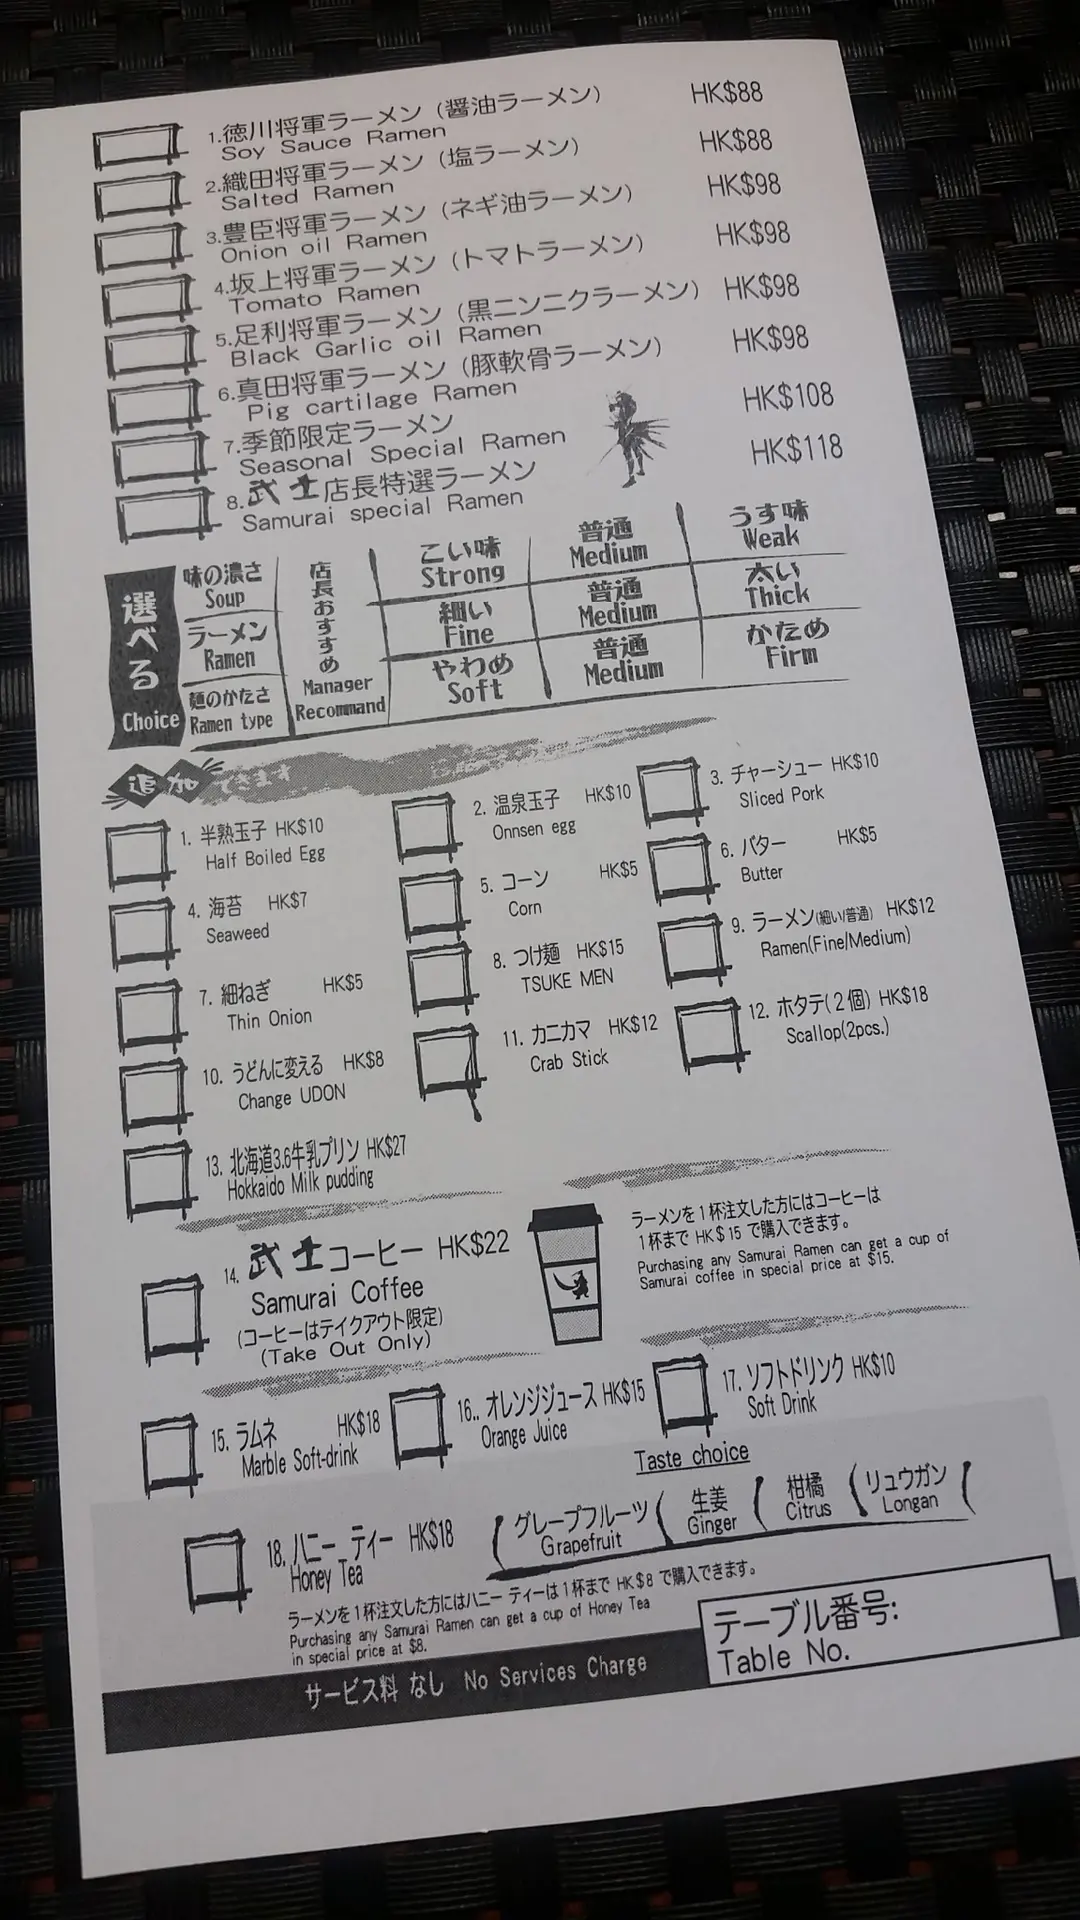 1.徳川将軍ラーメン（醤油ラーメン） HK$88
Soy Sauce Ramen
2.織田将軍ラーメン（塩ラーメン） HK$88
Salted Ramen
3.豊臣将軍ラーメン（ネギ油ラーメン） HK$98
Onion oil Ramen
4.坂上将軍ラーメン（トマトラーメン） HK$98
Tomato Ramen
5.足利将軍ラーメン（黒ニンニクラーメン） HK$98
Black Garlic oil Ramen
6.真田将軍ラーメン（豚軟骨ラーメン） HK$98
Pig cartilage Ramen
7.季節限定ラーメン HK$108
Seasonal Special Ramen
8.武士店長特選ラーメン HK$118
Samurai special Ramen
選べる
Choice
味の濃さ
Soup
ラーメン
Ramen
麺のかたさ
Ramen type
店長おすすめ
Manager
Recommand
こい味 普通 うす味
Strong Medium Weak
細い 普通 太い
Fine Medium Thick
やわめ 普通 かため
Soft Medium Firm
追加できます
1. 半熟玉子 HK$10
Half Boiled Egg
2. 温泉玉子 HK$10
Onnsen egg
3. チャーシュー HK$10
Sliced Pork
4. 海苔 HK$7
Seaweed
5. コーン HK$5
Corn
6. バター HK$5
Butter
7. 細ねぎ HK$5
Thin Onion
8. つけ麺 HK$15
TSUKE MEN
9. ラーメン(細い/普通) HK$12
Ramen(Fine/Medium)
10. うどんに変える HK$8
Change UDON
11. カニカマ HK$12
Crab Stick
12. ホタテ(２個) HK$18
Scallop(2pcs.)
13. 北海道3.6牛乳プリン HK$27
Hokkaido Milk pudding
14. 武士コーヒー HK$22
Samurai Coffee
(コーヒーはテイクアウト限定)
(Take Out Only)
ラーメンを１杯注文した方にはコーヒーは
１杯まで HK＄15 で購入できます。
Purchasing any Samurai Ramen can get a cup of
Samurai coffee in special price at $15.
15. ラムネ HK$18
Marble Soft-drink
16.. オレンジジュース HK$15
Orange Juice
17. ソフトドリンク HK$10
Soft Drink
Taste choice
18. ハニー ティー HK$18
Honey Tea
グレープフルーツ
Grapefruit
生姜
Ginger
柑橘
Citrus
リュウガン
Longan
ラーメンを１杯注文した方にはハニー ティーは１杯まで HK＄8 で購入できます。
Purchasing any Samurai Ramen can get a cup of Honey Tea
in special price at $8.
サービス料 なし No Services Charge
テーブル番号:
Table No.